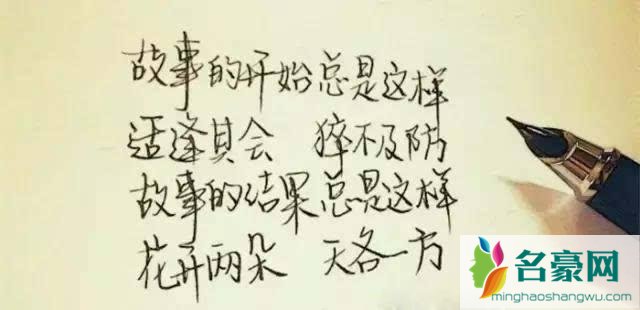 故事的开始总是这样
适逢其会 猝不及防
故事的结果总是这样
花开两朵 天各一方
名豪网
minghaoshangwu.com